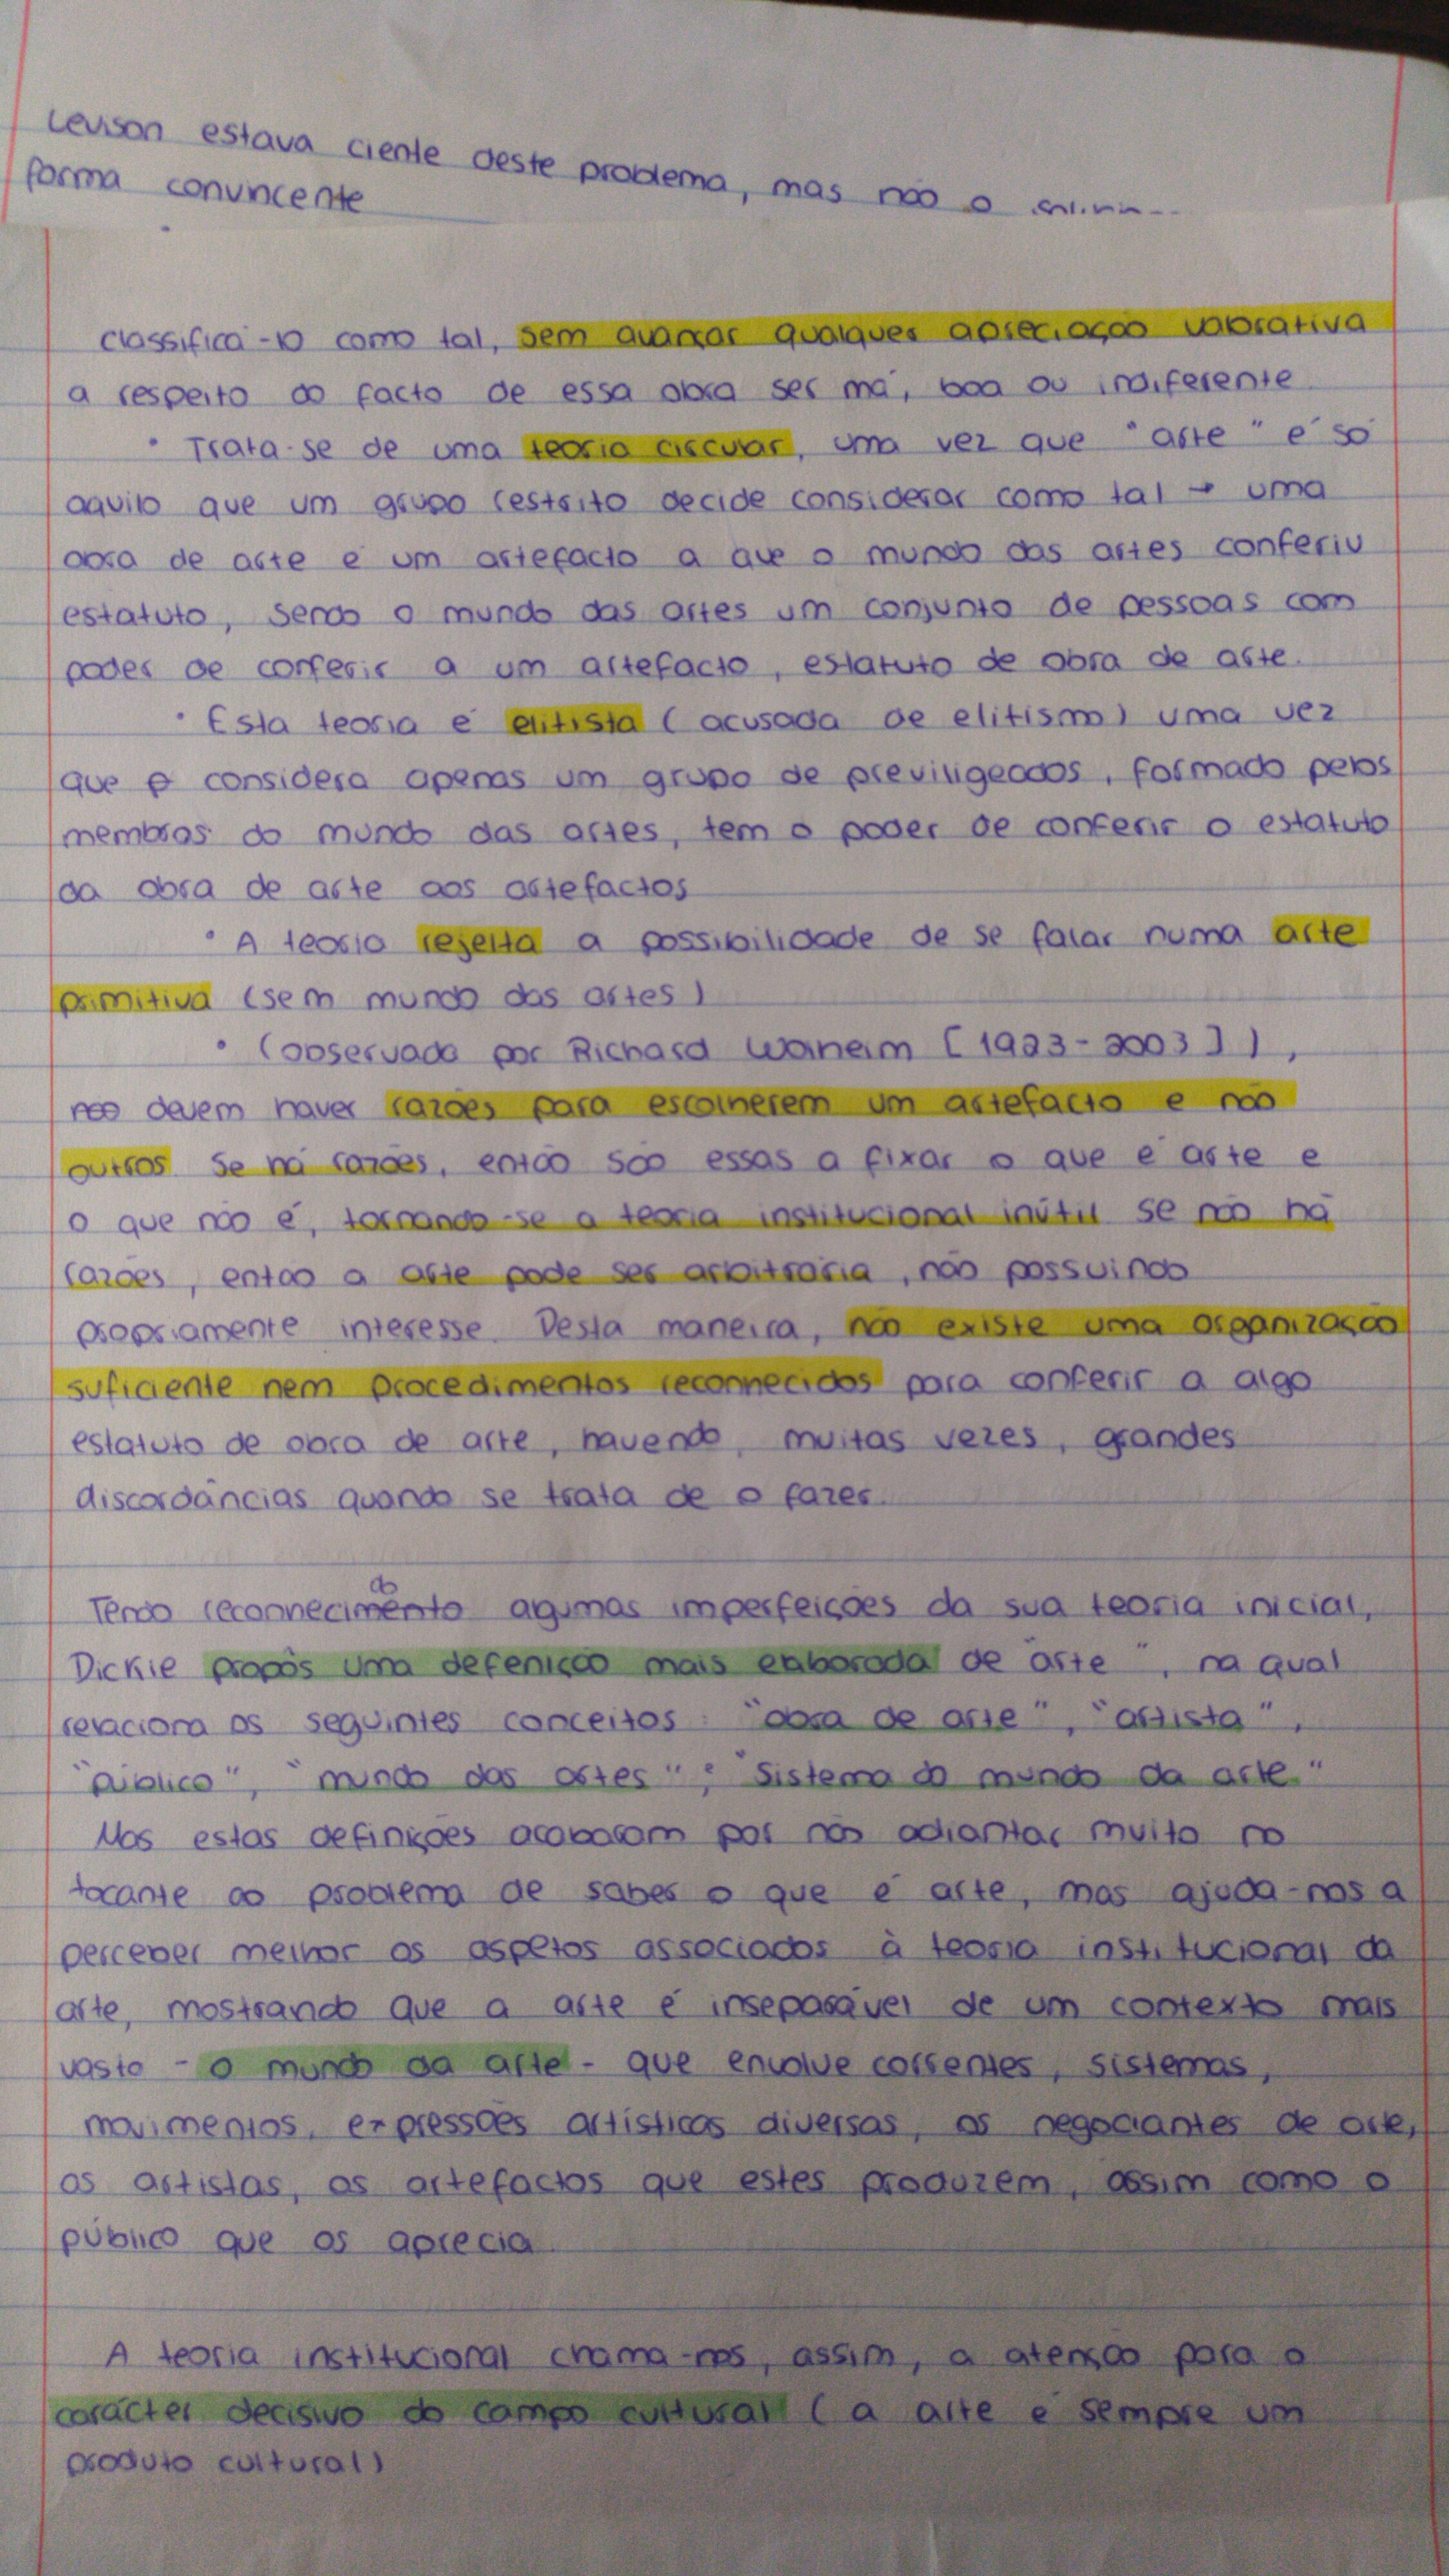 Levison estava ciente deste problema, mas não o
forma convincente
classificá-lo como tal, sem avançar qualquer apreciação valorativa
a respeito do facto de essa obra ser má, boa ou indiferente
• Trata-se de uma teoria circular, uma vez que "arte" é só
aquilo que um grupo restrito decide considerar como tal → uma
obra de arte é um artefacto a que o mundo das artes conferiu
estatuto, sendo o mundo das artes um conjunto de pessoas com
poder de conferir a um artefacto, estatuto de obra de arte.
• Esta teoria é elitista (acusada de elitismo) uma vez
que considera apenas um grupo de previligeados, formado pelos
membros do mundo das artes, tem o poder de conferir o estatuto
da obra de arte aos artefactos
• A teoria rejeita a possibilidade de se falar numa arte
primitiva (sem mundo das artes)
• (observado por Richard Wolheim [1923-2003]),
devem haver razões para escolherem um artefacto e não
outros. Se há razões, então são essas a fixar o que é arte e
o que não é, tornando-se a teoria institucional inútil. Se não há
razões, então a arte pode ser arbitrária, não possuindo
propriamente interesse. Desta maneira, não existe uma organização
suficiente nem procedimentos reconhecidos para conferir a algo
estatuto de obra de arte, havendo, muitas vezes, grandes
discordâncias quando se trata de o fazer.
Tendo reconhecimento do algumas imperfeições da sua teoria inicial,
Dickie propôs uma defenição mais elaborada de "arte", na qual
relaciona os seguintes conceitos: "obra de arte", "artista",
"público", "mundo das artes" e "Sistema do mundo da arte."
Mas estas definições acabaram por não adiantar muito no
tocante ao problema de saber o que é arte, mas ajuda-nos a
perceber melhor os aspetos associados à teoria institucional da
arte, mostrando que a arte é inseparável de um contexto mais
vasto - o mundo da arte - que envolve correntes, sistemas,
movimentos, expressões artísticas diversas, os negociantes de arte,
os artistas, os artefactos que estes produzem, assim como o
público que os aprecia.
A teoria institucional chama-nos, assim, a atenção para o
carácter decisivo do campo cultural (a arte é sempre um
produto cultural)